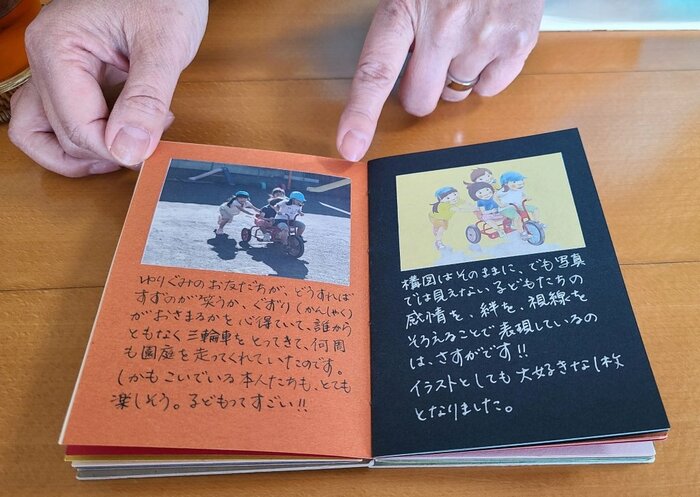 ゆりぐみのお友だちが、どうすれば
すずのが笑うか、ぐずり(かんしゃく)
がおさまるかを心得ていて、誰から
ともなく三輪車をとってきて、何周
も園庭を走ってくれていたのです。
しかもこいでいる本人たちも、とても
楽しそう。子どもってすごい!!
構図はそのままに、でも写真
では見えない子どもたちの
感情を、絆を、視線を
そろえることで表現しているの
は、さすがです!!
イラストとしても大好きな1枚
となりました。